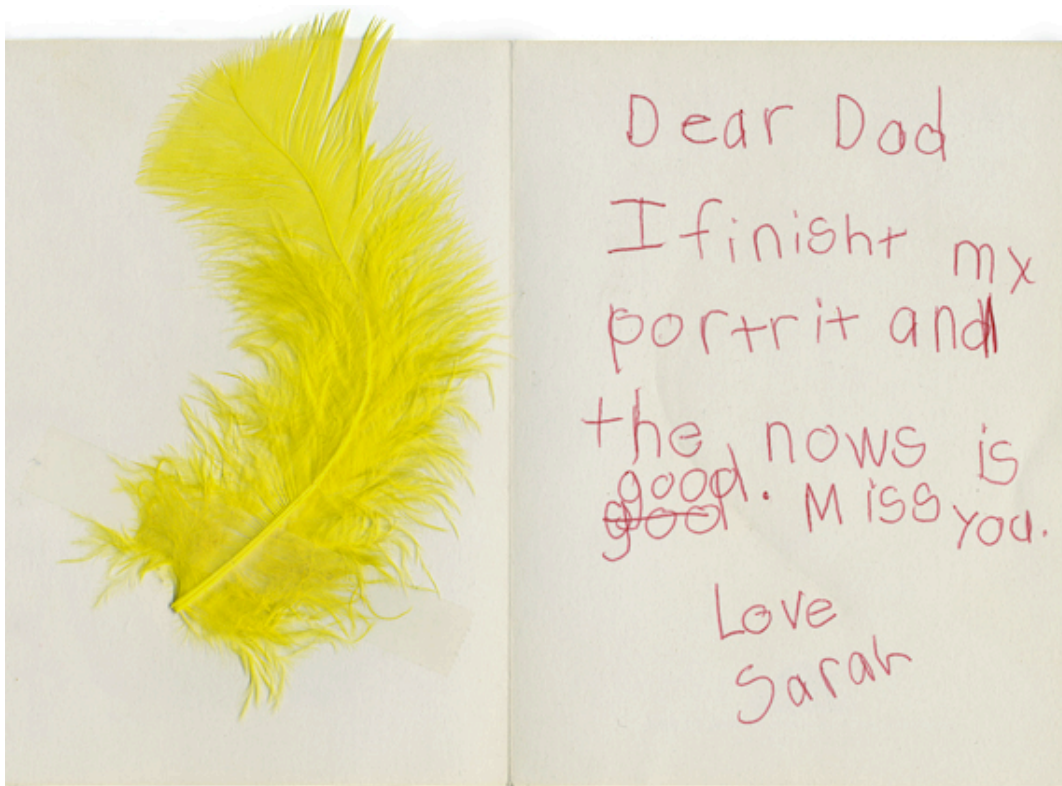 Dear Dad
I finisht my
portrit and
the nows is
good.
good . Miss you.
Love
Sarah